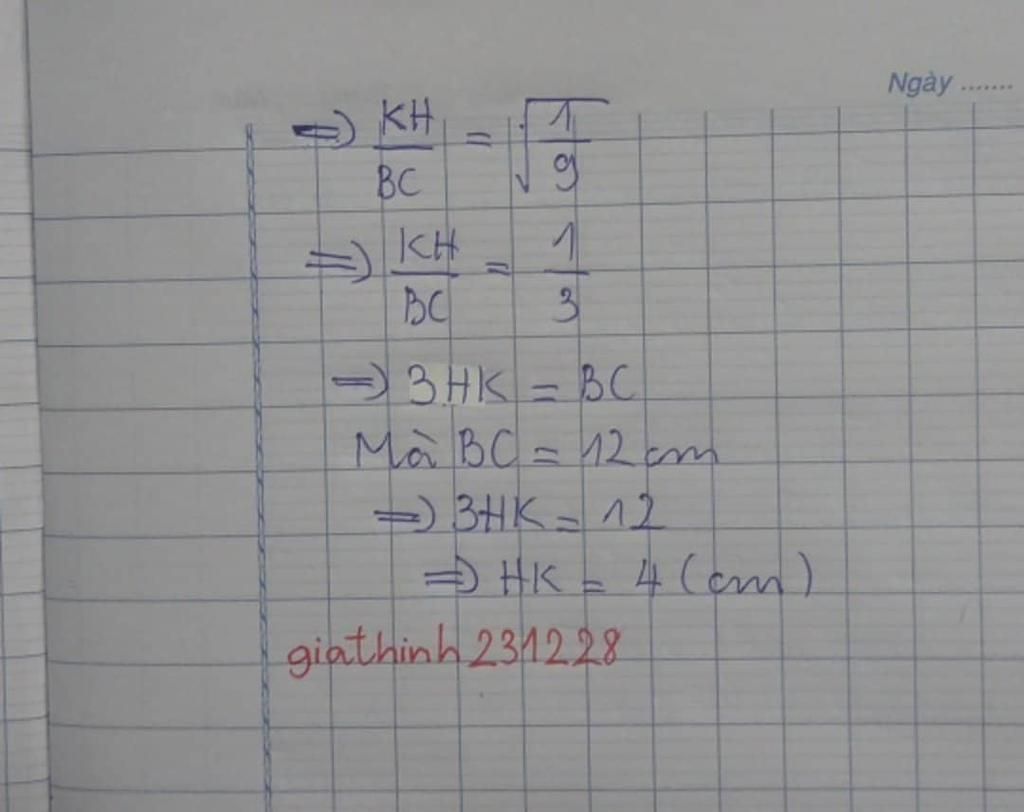 Ngày .......
=> KH/BC = √(1/9)
=> KH/BC = 1/3
=> 3HK = BC
Mà BC = 12 cm
=> 3HK = 12
=> HK = 4 (cm)
giathinh231228